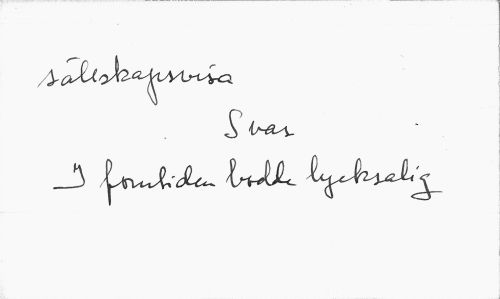 sällskapsvisa
Svar
I forntiden bodde lycksalig